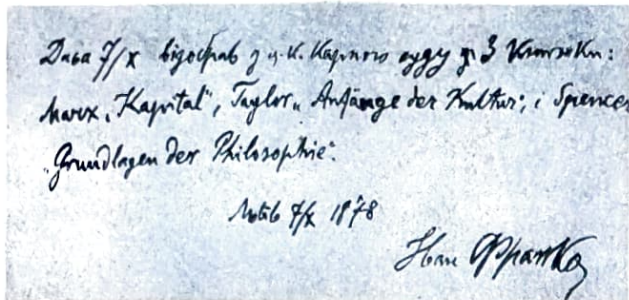 Дня 7/X відобрав з ц. к. Карного суду 3 книжки:
Marx „Kapital“, Taylor „Anfänge der Kultur“, і Spencer
„Grundlagen der Philosophie“.
Львів 7/X 1878
Іван Франко